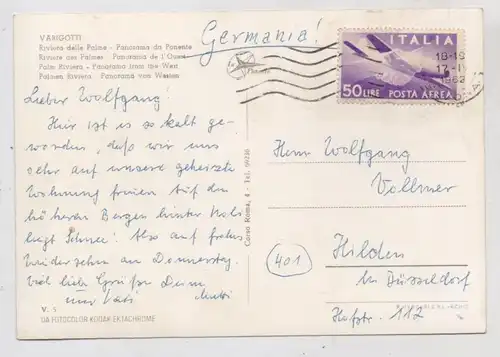 VARIGOTTI
Riviera delle Palme - Panorama da Ponente
Riviera des Palmes - Panorama de l'Ouest
Palm Riviera - Panorama from the West
Palmen Riviera - Panorama von Westen
Germania!
ITALIA
50 LIRE POSTA AEREA
18-19
1962
Lieber Wolfgang!
Hier ist es so kalt ge-
worden, daß wir uns
sehr auf unsere geheizte
Wohnung freuen. Auf den
höheren Bergen hinter
liegt Schnee! Also auf frohes
Wiedersehn am Donnerstag.
Viel liebe Grüße Deine
Vati Mutti
V. 5
DA FOTOCOLOR KODAK EKTACHROME
Corso Roma, 4 - Tel.
Herrn Wolfgang
Vollmer
401
Hilden
bei Düsseldorf
Hofstr. 112